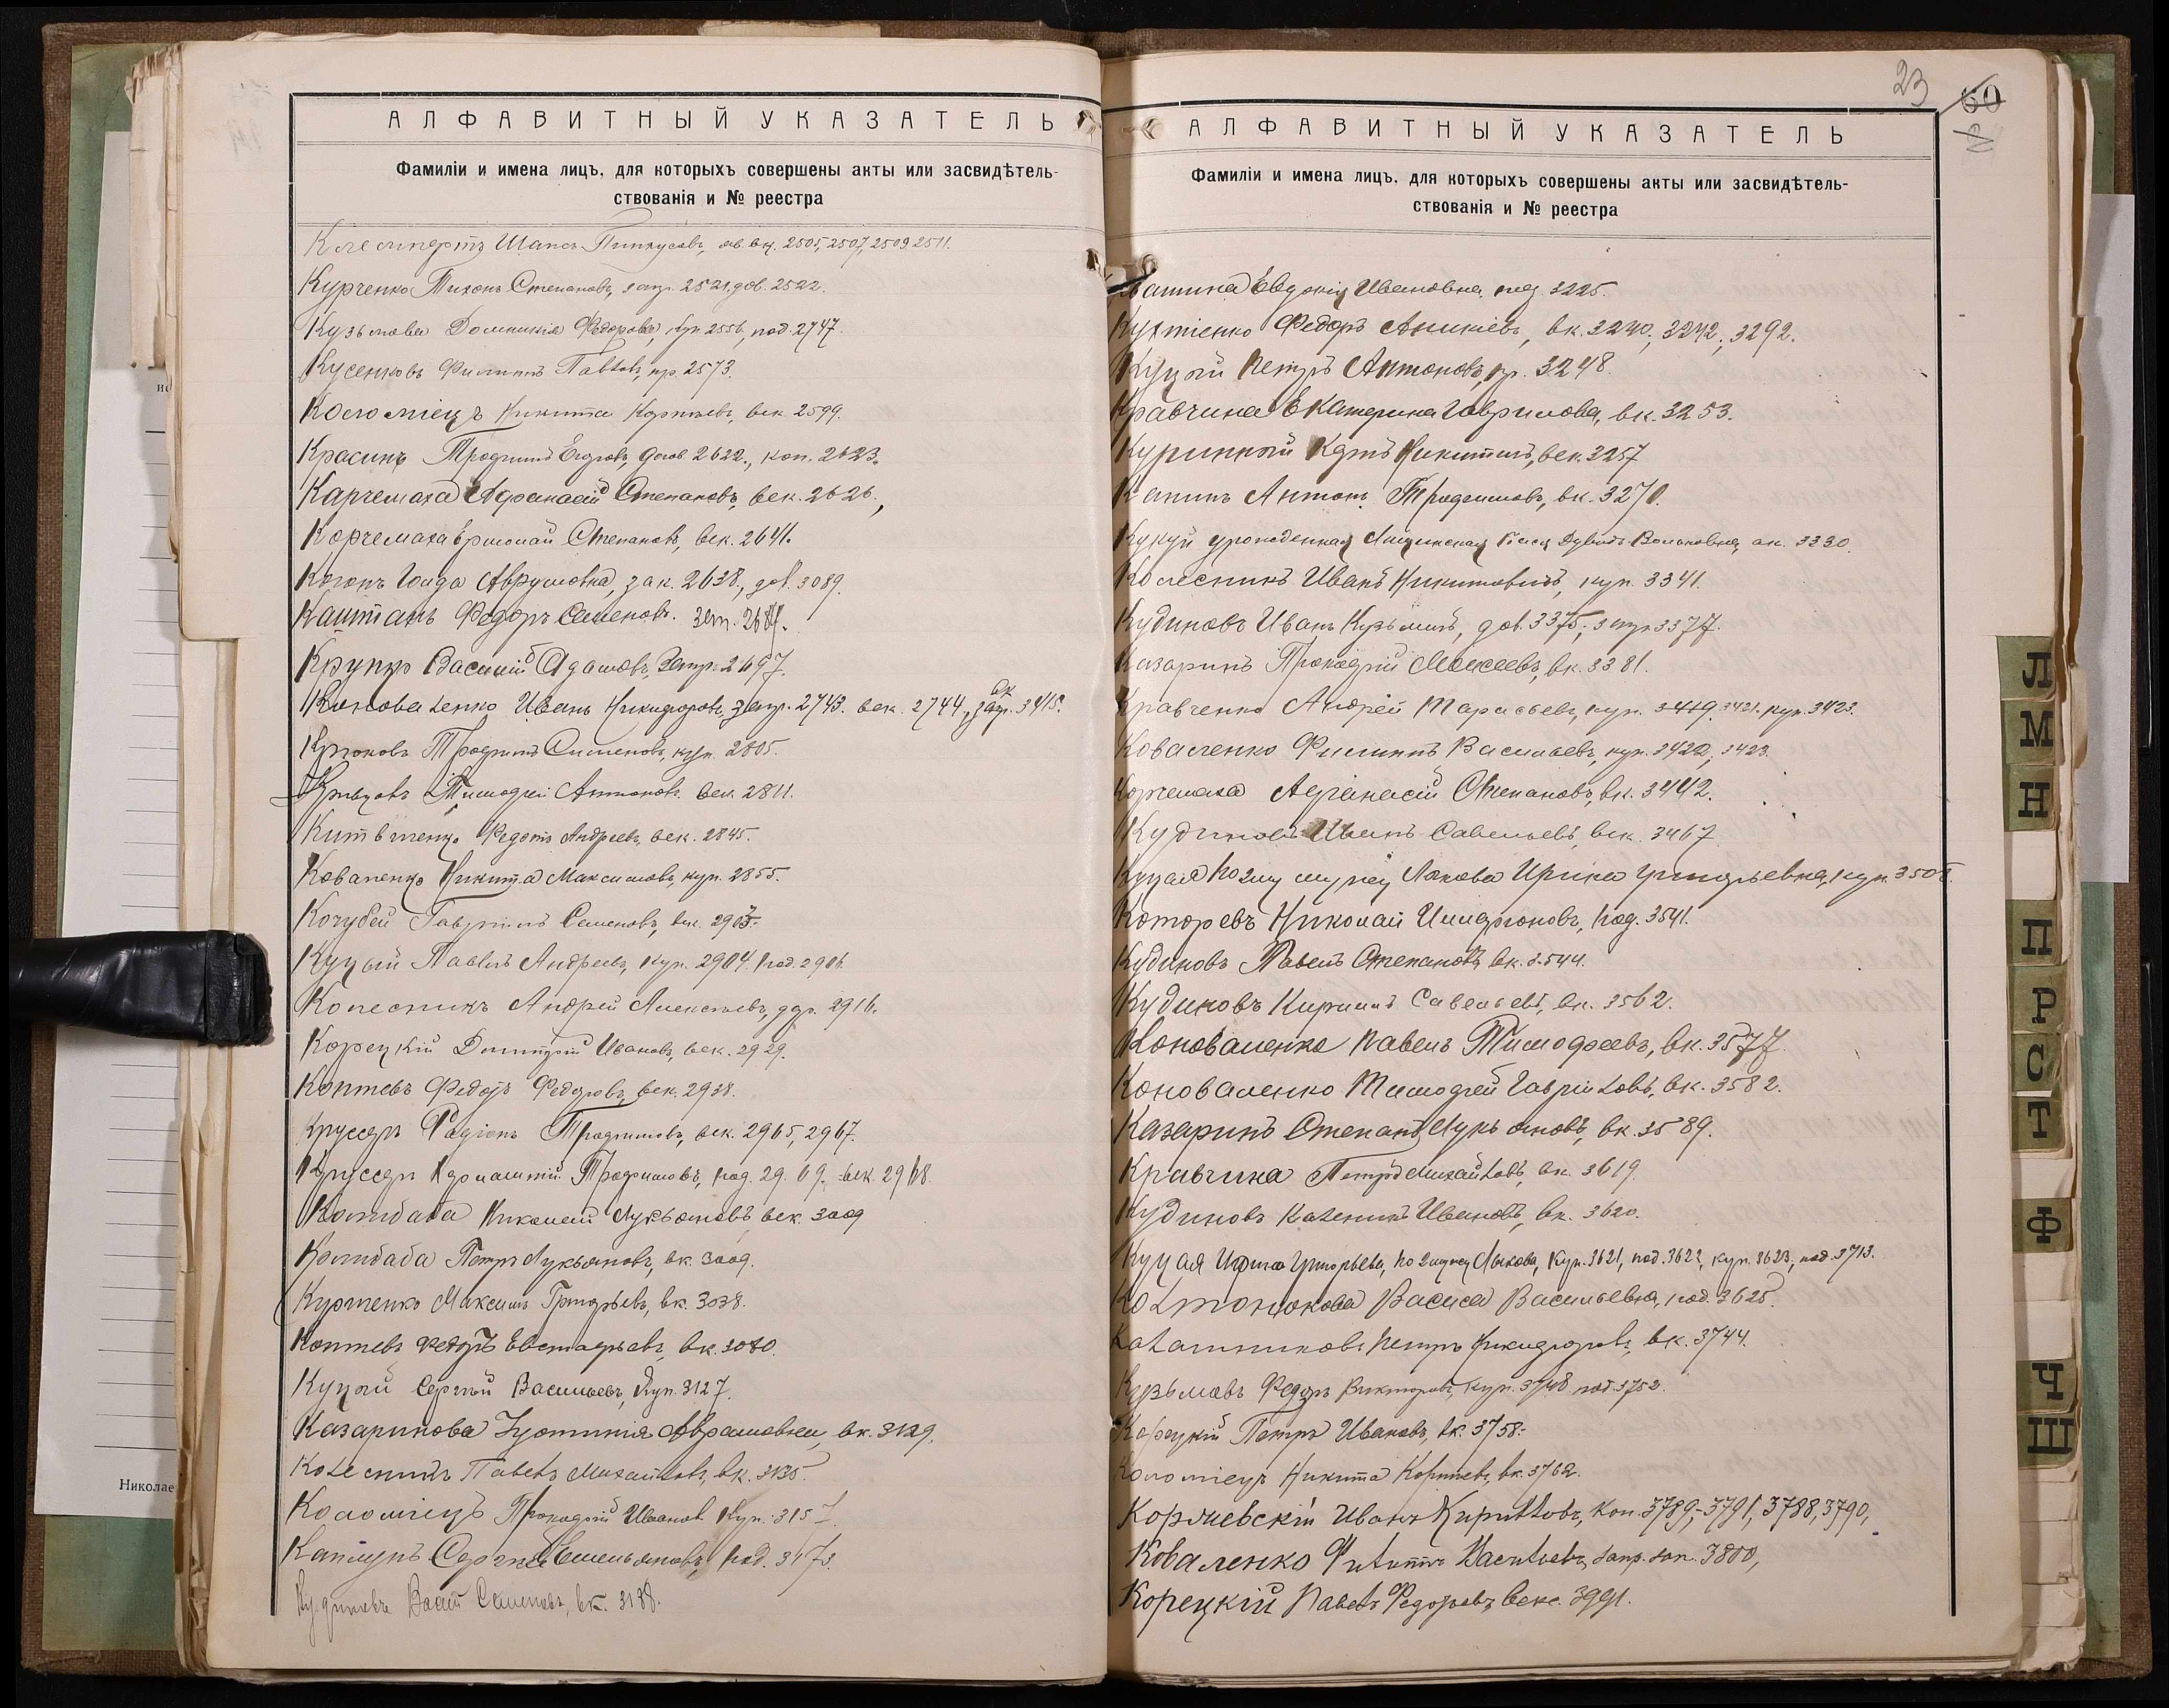 АЛФАВИТНЫЙ УКАЗАТЕЛЬ
Фамиліи и имена лицъ, для которыхъ совершены акты или засвидѣтель-
ствованія и № реестра
Шапсъ Пинкусовъ, 2505, 2507, 2509 2511.
Курченко Тихонъ Степановъ, запр. 2521, дов. 2522.
Кузьмова Домникія Федорова, куп. 2556, под. 2747.
Кусенковъ Филиппъ Павловъ, пр. 2573.
Коломіецъ Никита Корніевъ, век. 2599.
Красинъ Трофимъ Егоровъ, догов 2622., коп. 2623.
Карчемаха Афанасій Степановъ, век. 2626.,
Корчемаха Ермолай Степановъ, век. 2641.
Коганъ Голда Аврумовна, зак. 2638., дов. 3089.
Каштанъ Федоръ Семеновъ.
Крупко Василій Адамовъ, Запр. 2697.
Коноваленко Иванъ Никифоровъ, запр. 2743. век. 2744., вк запр. 3415.
Крюковъ Трофимъ Сименовъ, куп. 2805.
Кривцовъ Тимофей Антоновъ. век. 2811.
Федотъ Андреевъ, век. 2845.
Коваленко Никита Максимовъ, куп. 2855.
Кочубей Гавріилъ Семеновъ, век.
Куцый Павелъ Андреевъ, куп. 2904. под. 2906.
Колесникъ Андрей Алексѣевъ, 2916.
Корецкій Дмитрій Ивановъ, век. 2929.
Коптевъ Федоръ Федоровъ, век. 2938.
Круссеръ Радіонъ Трофимовъ, век. 2965, 2967.
Круссеръ Трофимовъ, под. 29.69., век. 2968
Колибаба Николай Лукьяновъ, век. 3009
Колибаба Петръ Лукьяновъ, вк. 3009.
Максимъ Григорьевъ, вк. 3038.
Коптевъ Федоръ Евстафьевъ, вк. 3080.
Куцый Сергѣй Васильевъ, куп. 3127.
Казаринова Аврамовна, вк. 3129.
Колесникъ Павелъ Михайловъ, вк. 3135.
Коломіецъ Прокофій Ивановъ куп. 3157.
Каплунъ Сергѣй Емельяновъ, под. 3173.
Кудиновъ Васил Семеновъ, вк. 3188.
23
60
АЛФАВИТНЫЙ УКАЗАТЕЛЬ
Фамиліи и имена лицъ, для которыхъ совершены акты или засвидѣтель-
ствованія и № реестра
Евдокія Ивановна, 3225.
Федоръ Аникіевъ, вк. 3240, 3242, 3292.
Куцый Петръ Антоновъ, пр. 3248.
Кравчина Екатерина Гаврилова, вк. 3253.
Куринный Никитинъ, век. 3257
Капинъ Антонъ Трофимовъ, вк. 3270.
Кукуй урожденная 3330.
Колесникъ Иванъ Никитовичъ, куп. 3341.
Кудиновъ Иванъ Кузьмичъ, дов. 3375, запр. 3377.
Казаринъ Прокофій Моисеевъ, вк. 3381.
Кравченко Андрей Тарасьевъ, куп. 3419, 3421. куп. 3423.
Коваленко Филиппъ Васильевъ, куп. 3422, 3423.
Корчемаха Афанасій Степановъ, вк. 3442.
Кудиновъ Иванъ Савельевъ, век. 3467
Куцая по 2му мужу Локова Ирина Григорьевна, куп.
Которевъ Николай под. 3541.
Кудиновъ Павелъ Степановъ, вк. 3544.
Кудиновъ Кириллъ Савельевъ, вк. 3562.
Коноваленко Павелъ Тимофеевъ, вк. 3577.
Коноваленко Тимофей Гавріиловъ, вк. 3582.
Казаринъ Степанъ Лукьяновъ, вк. 3589.
Кравчина Петръ Михайловъ, вк. 3619.
Кудиновъ Каленикъ Ивановъ, вк. 3620.
Куцая Ирина Григорьева, по 2 мужу Лыкова, куп. 3621, под. 3622, куп. 3623, под. 3713.
Васса Васильевна, под. 3625.
Калашниковъ Петръ Никифоровъ, вк. 3744.
Кузьмовъ Федоръ Викторовъ, куп. 3748 под. 3752.
Корецкій Петръ Ивановъ, вк. 3758.
Коломіецъ Никита Корніевъ, вк. 3762.
Иванъ Кирилловъ, коп. 3789,-3791, 3788, 3790,
Коваленко Филиппъ Васильевъ, запр. 3800,
Корецкій Павелъ Федоровъ, векс. 3991.
Л
М
Н
П
Р
С
Т
Ф
Ч
Ш
Николае